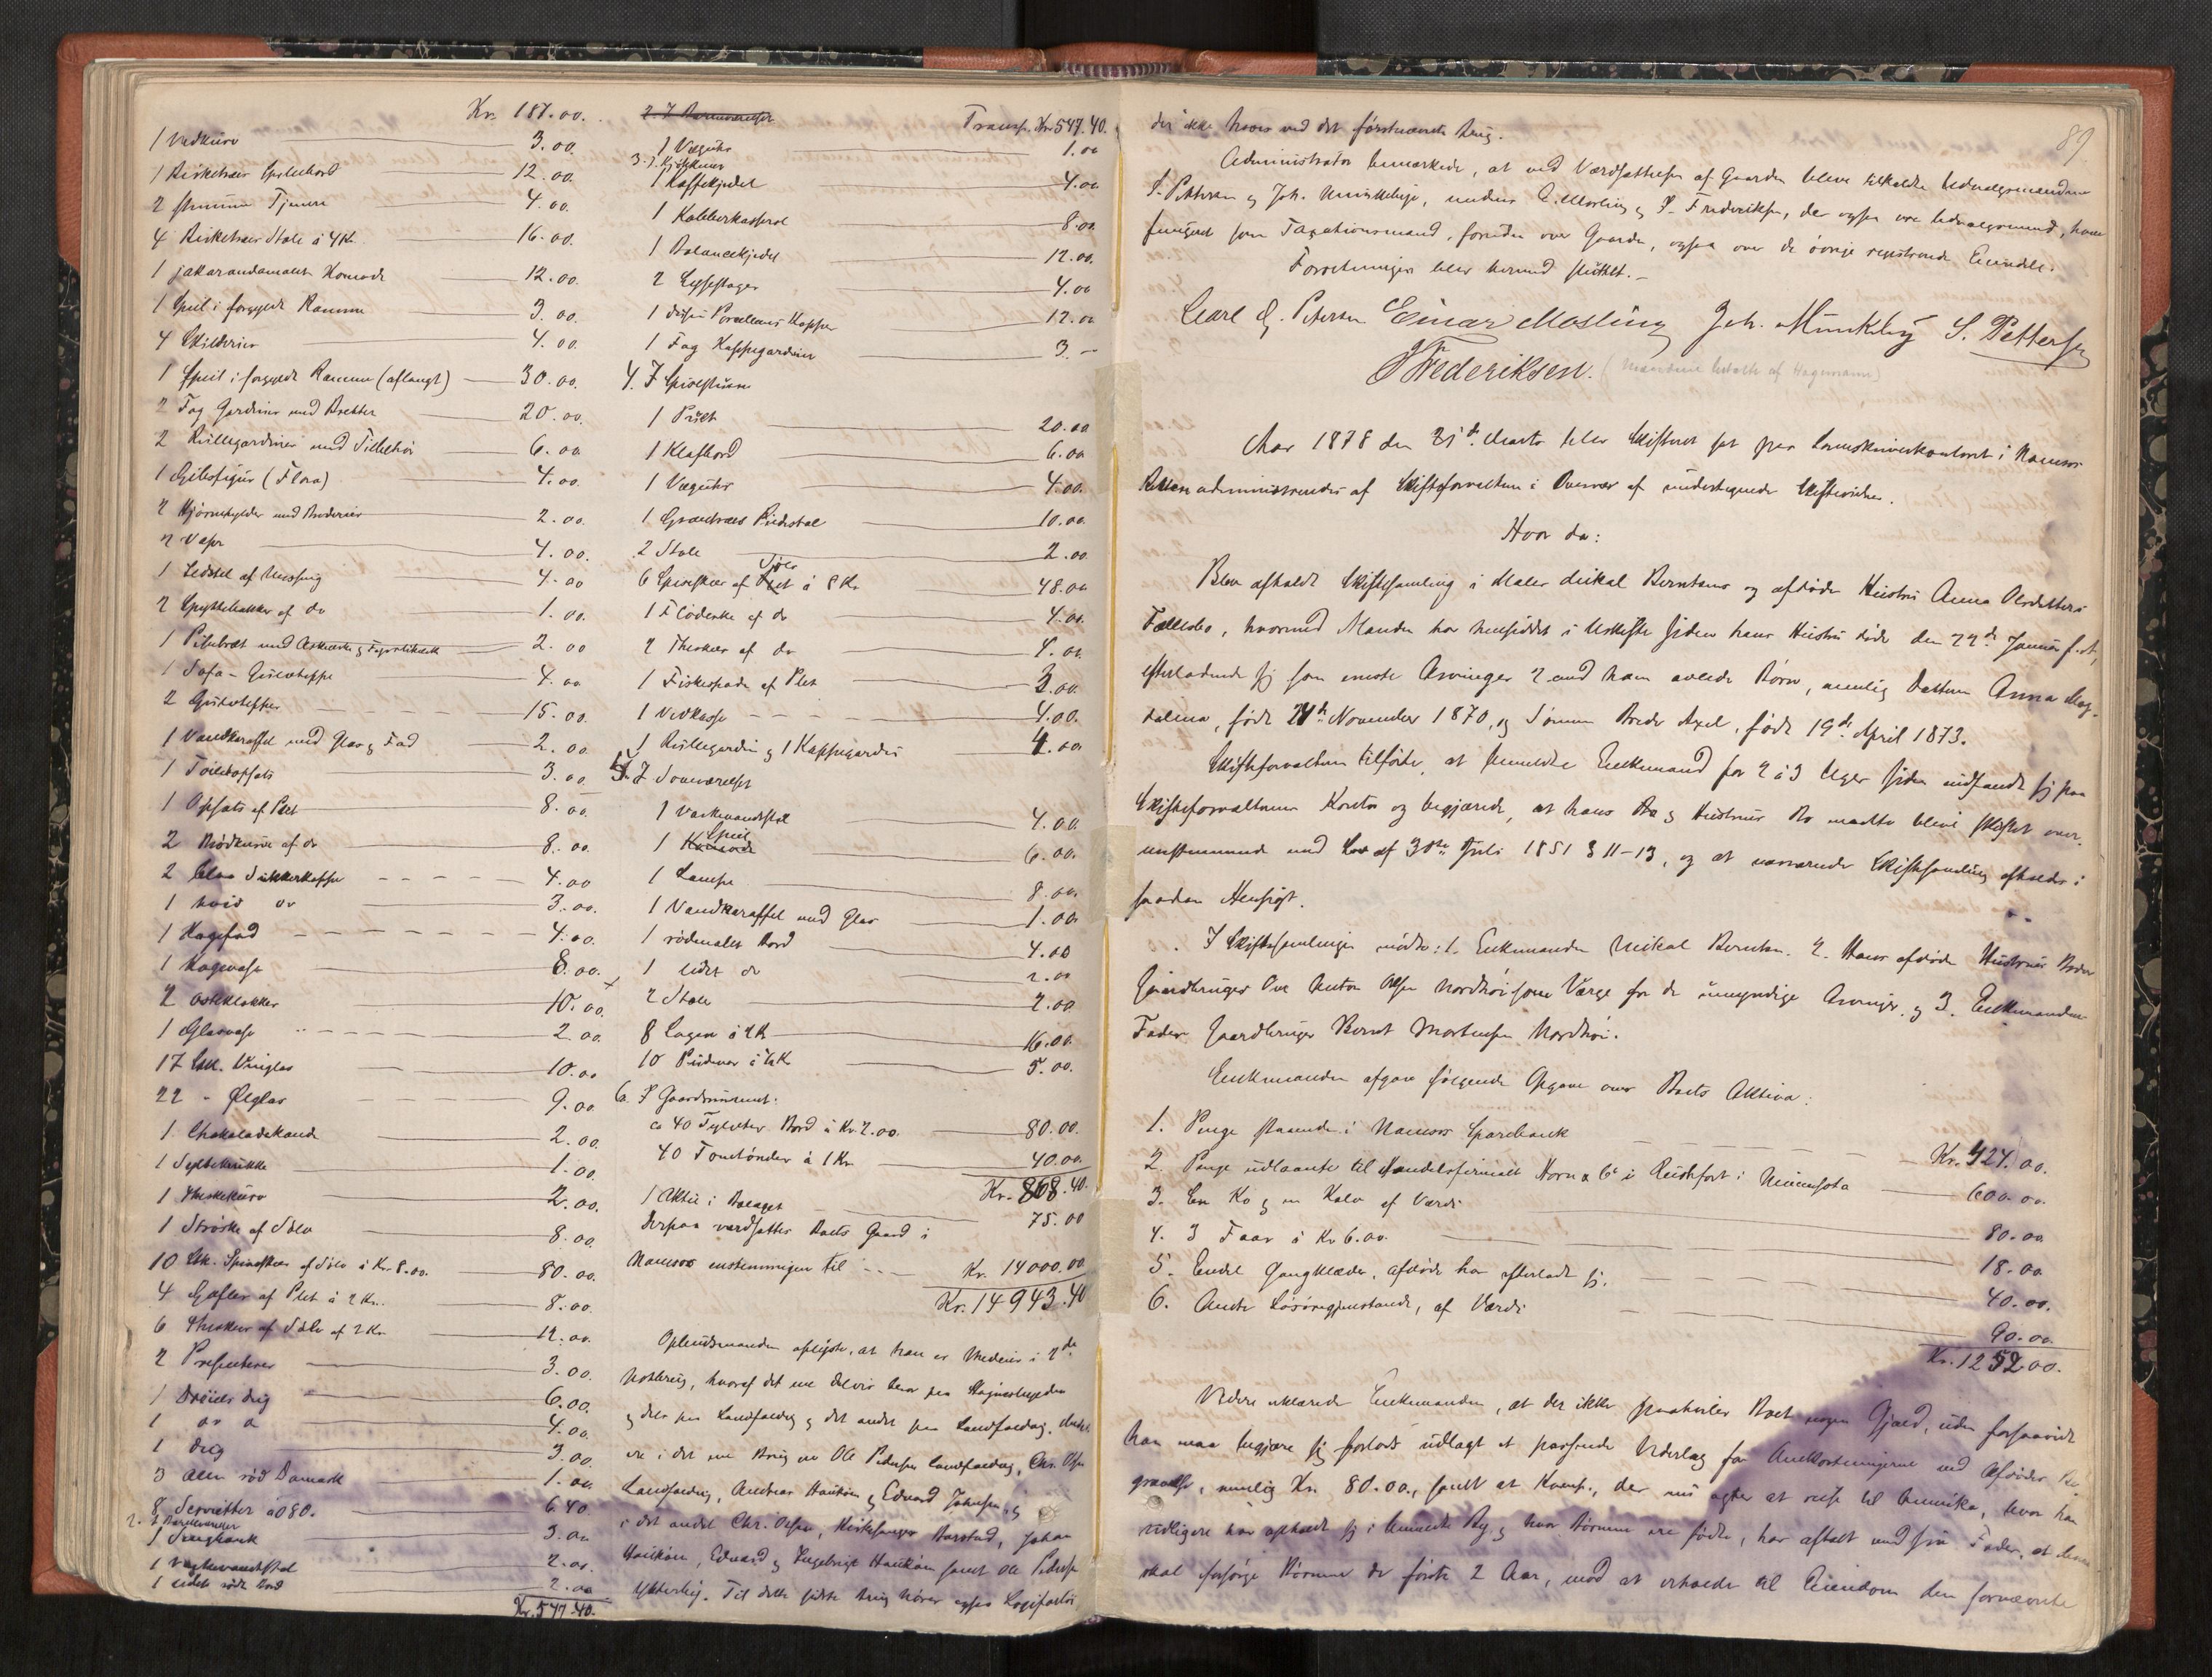 Kr. 187.00.
1 Vedkurv 3.00.
1 Birketræes Spillebord 12.00.
2 stumme Tjenere 4.00.
4 Birketræes Stole à 4 Kr. 16.00.
1 jakarandamalet Komode 12.00.
1 Speil i forgyldt Ramme 3.00.
4 Skilderier 4.00.
1 Speil i forgyldt Ramme (aflangt) 30.00.
2 Fag Gardiner med Brætter 20.00.
2 Rullegardiner med Tilbehør 6.00
1 Gibsfigur (Flora) 4.00.
2 Hjørnehylder med Broderier 2.00.
2 Vaser 4.00.
1 af Messing 4.00
2 Spyttebakker af do 1.00.
1 Pibebræt med 2.00
1 Sofa-Gulvteppe 4.00
2 Gulvtepper 15.00.
1 Vandkaraffel med Glas og Fad 2.00
1 Toiletopsats 3.00
1 Opsats af Plet 8.00.
2 Brødkurve af do 8.00.
2 blaa Sukkerkopper 4.00
1 hvid do 3.00.
1 Kagefad 4.00.
1 Kagevase 8.00.
2 Osteklokker 10.00.
1 Glasvase 2.00.
17 Stk. Vinglas 10.00
22 - Ølglas 9.00.
1 Chokoladekande 2.00.
1 Syltekrukke 1.00.
1 Theskekurv 2.00.
1 Strøske af Sølv 8.00.
10 Stk. Spiseskeer af Sølv à Kr. 8.00. 80.00.
4 Gafler af Plet à 2 Kr. 8.00.
6 Theskeer af Sølv af 2 Kr. 12.00.
2 Presenterer 3.00.
1 Dreiels Dug 6.00.
1 do do 4.00.
1 Dug 3.00.
3 Alen rød Damask 1.00.
8 Servietter à 0 80. 6.40
2. I Barneværelset
1 Seng 3.00
1 Vaskevandsstol 2.00.
1 lidet rødt Bord 2.00
Kr. 547.40.
2. I Barneværelset Transp. Kr. 547.40.
1 Væguhr 1.00
3. I Kjøkkenet
1 Kaffekjedel 4.00.
1 Kobberkasserol 8.00.
1 Balancekjedel 12.00.
2 Lysestager 4.00
1 dusin Porcellæns Kopper 12.00
1 Fag Kappegardiner 3.—
4. I Spisestuen
1 Pult 20.00
1 Klafbord 6.00
1 Væguhr 4.00.
1 Grantræes Piedestal 10.00.
2 Stole 2.00
6 Spiseskeer af Plet Sølv à 8 Kr. 48.00
1 Flødeske af do 4.00.
2 Theskeer af do 4.00.
1 Fiskespade af Plet 3.00.
1 Vedkasse 4.00.
1 Rullegardin og 1 Kappegardin 4.00
5. I Soveværelset
1 Vaskevandsstol 4.00.
1 Komode Speil 6.00.
1 Lampe 8.00.
1 Vandkaraffel med Glas 1.00
1 rødmalet Bord 4.00
1 lidet do 2.00
2 Stole 2.00
8 Lagen à 2 Kr 16.00
10 Puder à ½ Kr 5.00.
6. I Gaardsrummet:
ca 40 Tylvter Bord à Kr. 2.00. 80.00.
40 Tomtønder à 1 Kr. 40.00.
Kr. 868.40.
1 Aktie i Bolaget 75.00
Derpaa værdsattes Boets Gaard i
Namsos enstemmigen til Kr. 14000.00
Kr. 14943.40
Opbudsmanden oplyste, at han er Medeier i 2de
Notbrug, hvoraf det ene delvis beror paa
og dels paa Landfaldøg og det andet paa Landfaldøg. Andels-
ere i det ene Brug ere Ole Pedersen Landfaldøg, Chr. Olsen
Landfaldøg, Andreas og Edvard Johnsen, og
i det andet Chr. Olsen, Kirkesanger Barstad, Johan
, Edvard og Ingebrigt samt Ole Pedersen
. Til dette sidste Brug hører ogsaa
89.
der ikke haves ved det førstnævnte Brug.
Administrator bemærkede, at ved Værdsættelsen af Gaarden bleve tilkaldte Udvalgsmændene
S. Pettersen og Joh. Munkeby, medens E. Mosling og P. Frederiksen, der ogsaa ere Udvalgsmænd, have
fungeret som Taxationsmænd, foruden over Gaarden, ogsaa over de øvrige registrerede Eiendele.
Forretningen blev hermed sluttet.—
Carl J. Petersen Einar Mosling Joh. Munkeby S. Pettersen
P Frederiksen. (Mændene betalte af Hagemann)
Aar 1878 den 21de Marts blev Skifteret sat paa Sorenskriverkontoret i Namsos
Retten administreredes af Skifteforvalteren i Overvær af undertegnede Skiftevidner.
Hvor da:
Blev afholdt Skiftesamling i Maler Mikal Berntsens og afdøde Hustru Anna Olsdatters
Fællesbo, hvormed Manden har hensiddet i Uskifte siden hans Hustru døde den 22de Januar f.A.,
efterladende sig som eneste Arvinger 2 med ham avlede Børn, nemlig Datteren Anna Mag-
dalena, født 24de November 1870, og Sønnen Axel, født 19de April 1873.
Skifteforvalteren tilførte, at bemeldte Enkemand for 2 à 3 Uger siden indfandt sig paa
Skifteforvalterens Kontor og begjærede, at hans og Hustrues Bo maatte blive skiftet over-
ensstemmende med Lov af 30te Juli 1851 § 11-13, og at nærværende Skiftesamling afholdes i
saadan Hensigt.
I Skiftesamlingen mødte: 1. Enkemanden Mikal Berntsen. 2. Hans afdøde Hustrues Broder
Gaardbruger Ove Anton Olsen Nordhøi som Værge for de umyndige Arvinger, og 3. Enkemandens
Fader Gaardbruger Bernt Mortensen Nordhøi.
Enkemanden afgav følgende Opgave over Boets Aktiva:
1. Penge staaende i Namsos Sparebank Kr. 424.00.
2. Penge udlaante til Handelsfirmaet Horn & Co i Rushfort i Minnesota 600.00
3. En Ko og en Kalv af Værdi 80.00
4. 3 Faar à Kr 6.00. 18.00
5. Endel Gangklæder, afdøde har efterladt sig. 40.00.
6. Andre Løsøregjenstande, af Værdi 90.00.
Kr. 1252.00.
Videre erklærede Enkemanden, at der ikke paahviler Boet nogen Gjæld, uden forsaavidt
han maa begjære sig forlods udlagt et passende Vederlag for Omkostningerne ved Afdødes Be-
gravelse, nemlig Kr. 80.00, samt at Komp., der nu agter at reise til Amerika, hvor han
tidligere har opholdt sig i bemeldte By og hvor Børnene ere fødte, har aftalt med sin Fader, at denne
skal forsørge Børnene de første 2 Aar, mod at erholde til Eiendom den fornævnte